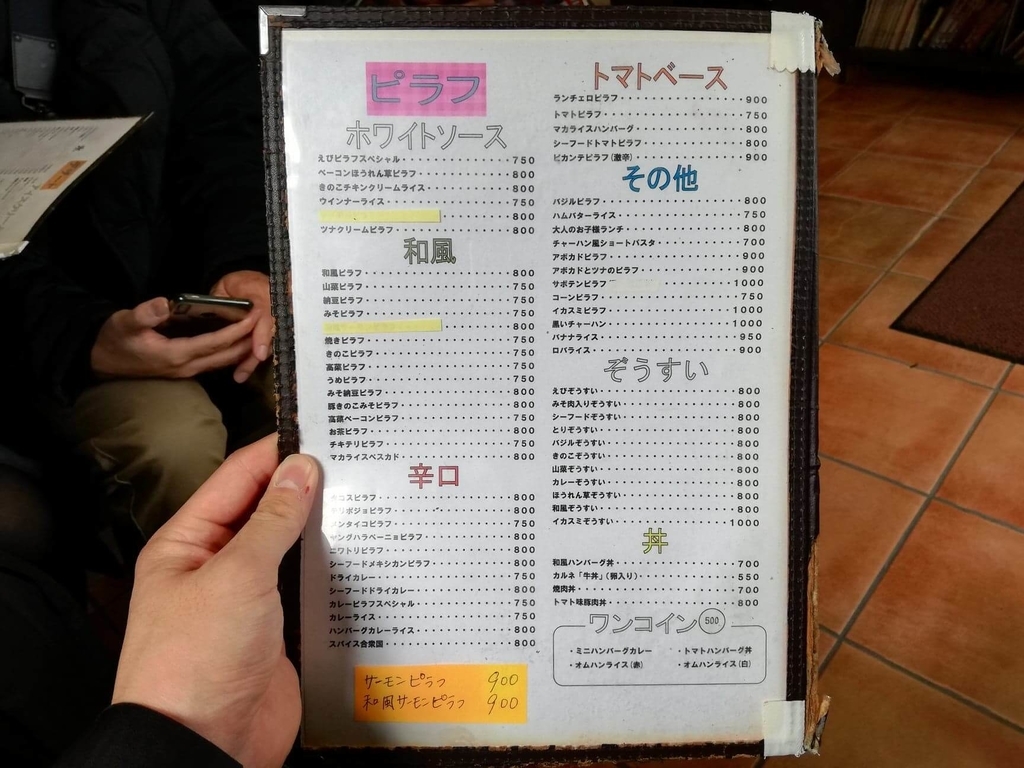 ピラフ
ホワイトソース
えびピラフスペシャル 750
ベーコンほうれん草ピラフ 800
きのこチキンクリームライス 800
ウインナーライス 750
800
ツナクリームピラフ 800
和風
和風ピラフ 800
山菜ピラフ 750
納豆ピラフ 750
みそピラフ 750
800
焼きピラフ 750
きのこピラフ 750
高菜ピラフ 750
うめピラフ 750
みそ納豆ピラフ 800
豚きのこみそピラフ 800
高菜ベーコンピラフ 750
お茶ピラフ 800
チキテリピラフ 750
マカライスペスカド 800
辛口
ピラフ 800
リポジョピラフ 800
ンタイコピラフ 750
ングハラペーニョピラフ 800
ニワトリピラフ 800
シーフードメキシカンピラフ 800
ドライカレー 750
シーフードドライカレー 800
カレーピラフスペシャル 750
カレーライス 750
ハンバーグカレーライス 800
スパイス合衆国 800
サーモンピラフ 900
和風サーモンピラフ 900
トマトベース
ランチェロピラフ 900
トマトピラフ 750
マカライスハンバーグ 800
シーフードトマトピラフ 800
ピカンテピラフ(激辛) 900
その他
バジルピラフ 800
ハムバターライス 750
大人のお子様ランチ 800
チャーハン風ショートパスタ 700
アボカドピラフ 900
アボカドとツナのピラフ 900
サボテンピラフ 1000
コーンピラフ 750
イカスミピラフ 1000
黒いチャーハン 1000
バナナライス 950
ロバライス 900
ぞうすい
えびぞうすい 800
みそ肉入りぞうすい 800
シーフードぞうすい 800
とりぞうすい 800
バジルぞうすい 800
きのこぞうすい 800
山菜ぞうすい 800
カレーぞうすい 800
ほうれん草ぞうすい 800
和風ぞうすい 800
イカスミぞうすい 1000
丼
和風ハンバーグ丼 700
カルネ「牛丼」(卵入り) 550
焼肉丼 700
トマト味豚肉丼 800
ワンコイン 500
・ミニハンバーグカレー ・トマトハンバーグ丼
・オムハンライス(赤) ・オムハンライス(白)